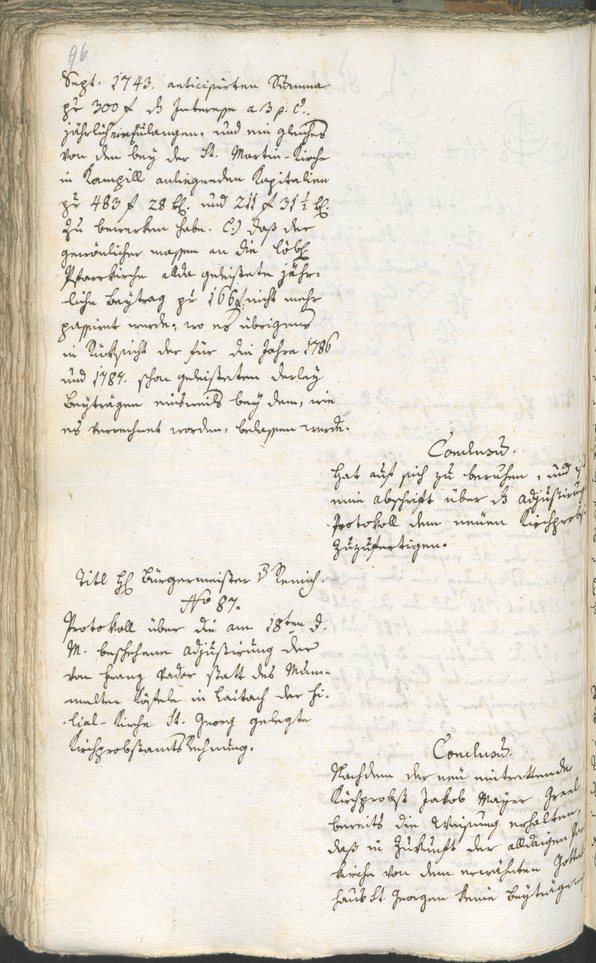 96
Sept. 1743. anticipirten Summa
pr 300 f. ds Interesse a 3 p. Co.
jährlich einzulangen, und ein gleiches
von den bey der St. Martin-Kirche
in Kampill anliegenden Kapitalien
pr 483 f 28 kr. und 211 f 31½ kr.
zu bemerken habe. C.) daß der
gewönlicher massen an die löbl.
Pfarrkirche alda geleistete jähr-
liche Beytrag pr 166 f nicht mehr
passiret werde, wo es übrigens
in Rücksicht der für die Jahre 1786
und 1787. schon geleisteten derley
Beyträgen bey dem, wie
es verrechnet worden, belassen werde.
Conclusū.
Hat auf sich zu beruhen, und ist
eine Abschrift über ds Adjustirungs
Protokoll dem neuen Kirchprobst
zuzufertigen.
Titl H. Bürgermeister
No 87.
Protokoll über die am 18ten d.
M. beschehene Adjustirung der
von Franz Vader statt des
Köstele in Laitach der Fi-
lial-Kirche St. Georg gelegte
Kirchprobstamts Rechnung.
Conclusū.
Nachdem der neu eintrettende
Kirchprobst Jakob Mayer
bereits die Weisung erhalten,
daß in Zukunft der alldaigen
Kirche von dem erwähnten Gottes
haus St. Georgen keine Beyträge